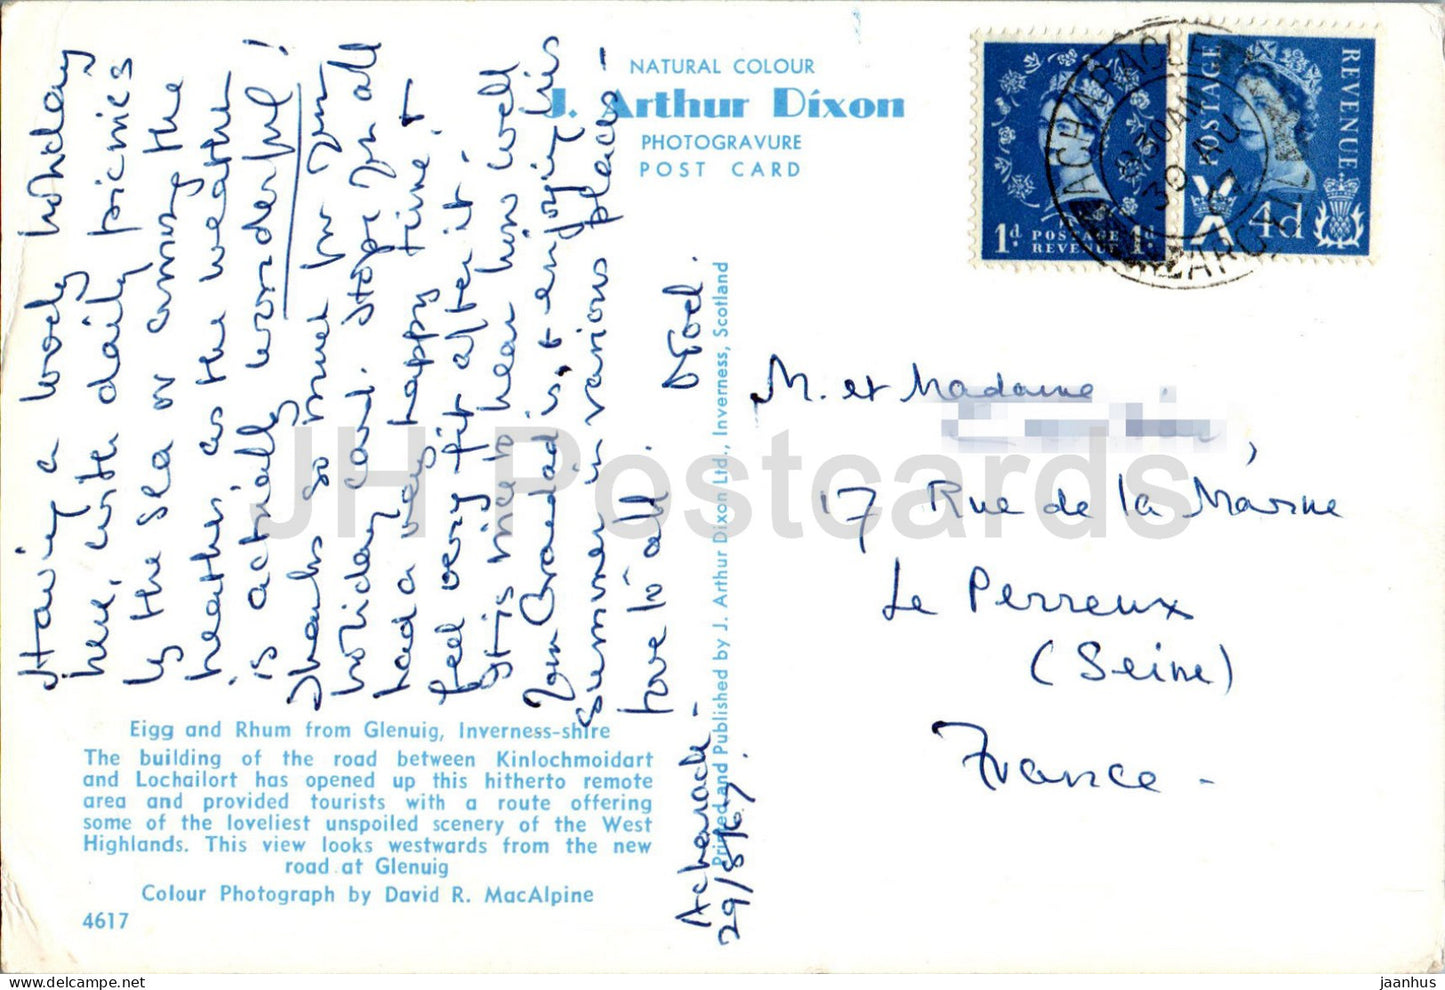 NATURAL COLOUR
J. Arthur Dixon
PHOTOGRAVURE
POST CARD
1d POSTAGE REVENUE 1d
POSTAGE
REVENUE
4d
ACHARACLE
8 30AM
30 AU
67
ARGYLL
Having a lovely holiday
here, with daily picnics
by the sea or among the
heather, as the weather
is actually wonderful!
Thanks so much for your
holiday card. Hope you all
had a very happy time &
feel very fit after it.
It is nice to hear how well
your Grandad is, & enjoying his
summer in various places –
Love to all.
Acharacle –
29/8/67.
M. et Madame
17 Rue de la Marne
Le Perreux
(Seine)
France –
Printed and Published by J. Arthur Dixon Ltd., Inverness, Scotland
Eigg and Rhum from Glenuig, Inverness-shire
The building of the road between Kinlochmoidart
and Lochailort has opened up this hitherto remote
area and provided tourists with a route offering
some of the loveliest unspoiled scenery of the West
Highlands. This view looks westwards from the new
road at Glenuig
Colour Photograph by David R. MacAlpine
4617
JH Postcards
jaanhus